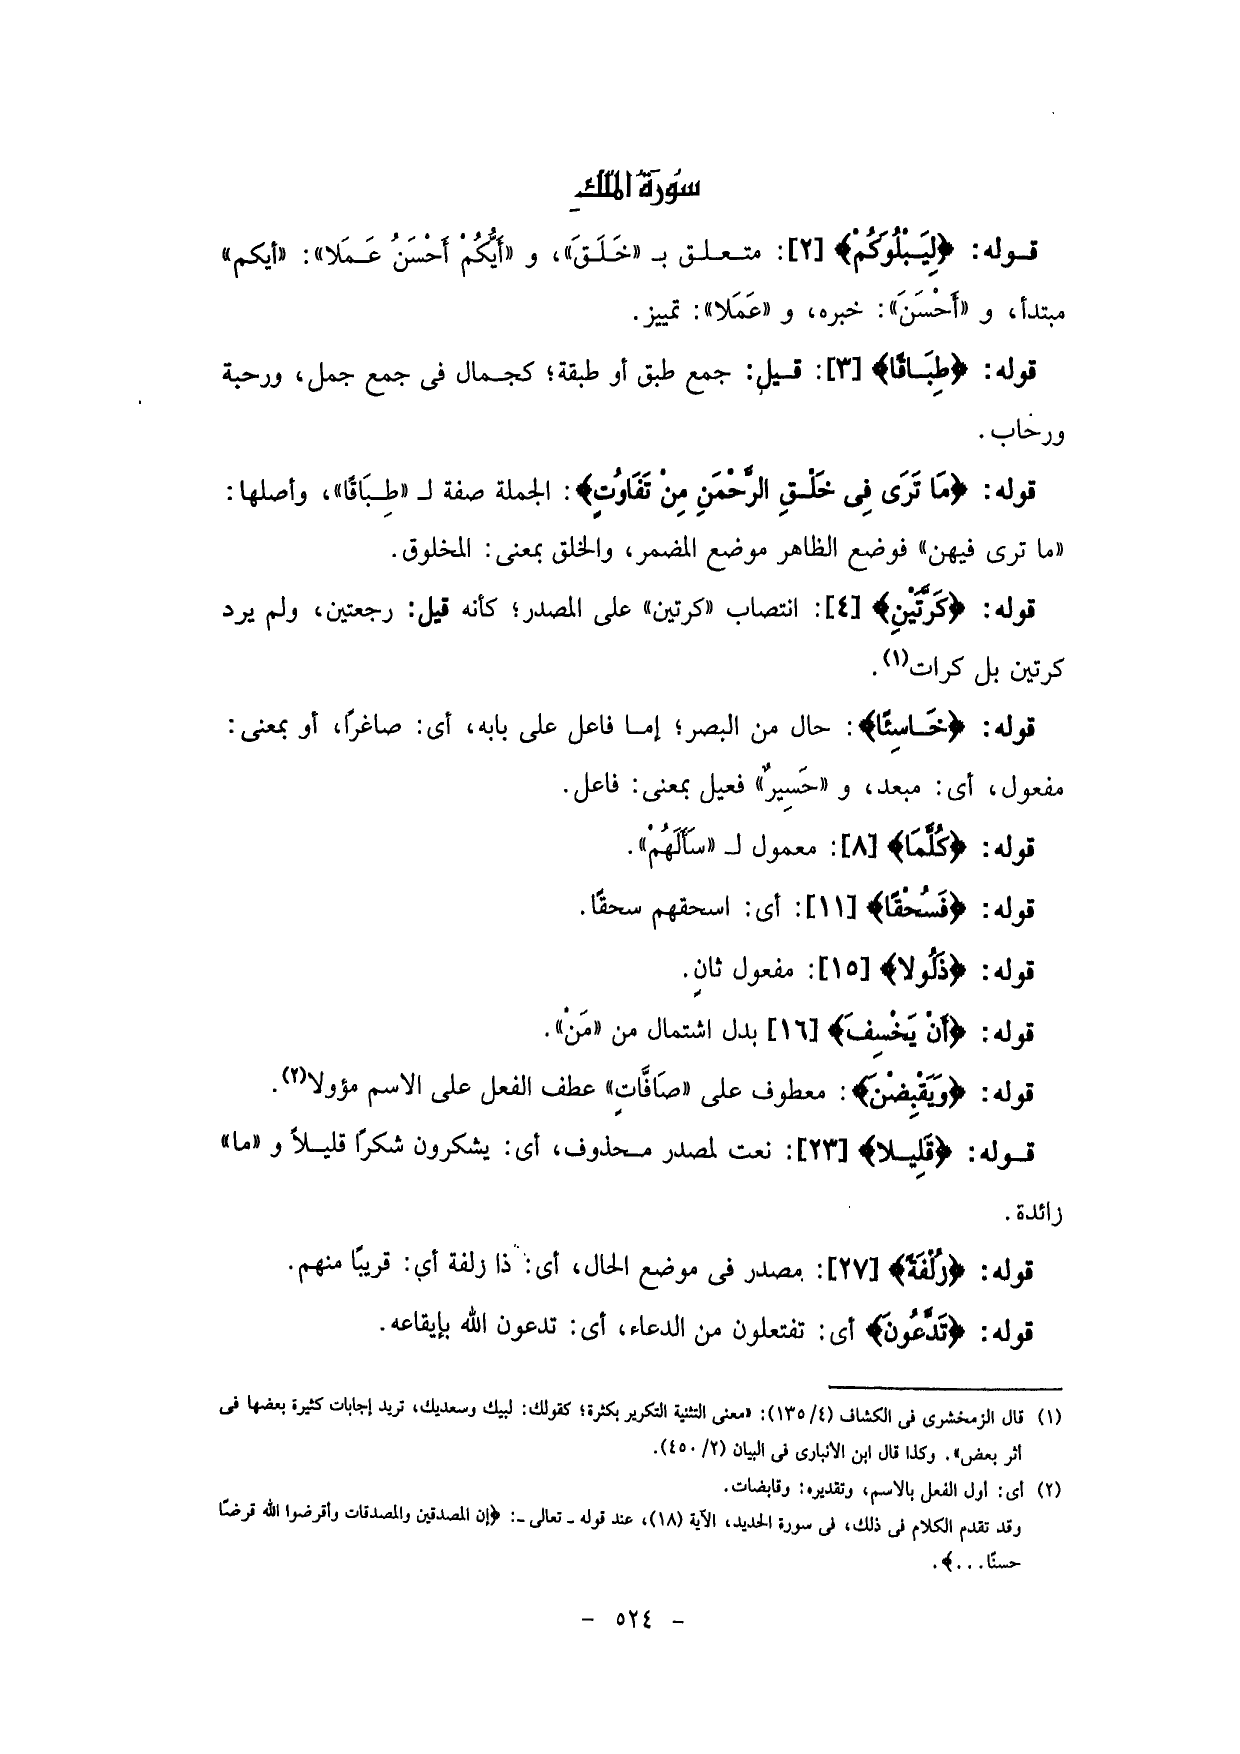 سُورَةُ المُلْكِ
قـوله: ﴿لِيَـبْلُوَكُمْ﴾ [٢]: متـعـلـق بـ «خَـلَـقَ»، و «أَيُّكُمْ أَحْسَنُ عَـمَلا»: «أيكم»
مبتدأ، و «أَحْسَنَ»: خبره، و «عَمَلا»: تمييز.
قوله: ﴿طِبَـاقًا﴾ [٣]: قـيل: جمع طبق أو طبقة؛ كجـمال فى جمع جمل، ورحبة
ورحاب.
قوله: ﴿مَا تَرَى فِى خَلْـقِ الرَّحْمَنِ مِنْ تَفَاوُتٍ﴾: الجملة صفة لـ «طِـبَاقًا»، وأصلها:
«ما ترى فيهن» فوضع الظاهر موضع المضمر، والخلق بمعنى: المخلوق.
قوله: ﴿كَرَّتَيْنِ﴾ [٤]: انتصاب «كرتين» على المصدر؛ كأنه قيل: رجعتين، ولم يرد
كرتين بل كرات(١).
قوله: ﴿خَـاسِئًا﴾: حال من البصر؛ إمـا فاعل على بابه، أى: صاغرًا، أو بمعنى:
مفعول، أى: مبعد، و «حَسِيرٌ» فعيل بمعنى: فاعل.
قوله: ﴿كُلَّمَا﴾ [٨]: معمول لـ «سَأَلَهُمْ».
قوله: ﴿فَسُحْقًا﴾ [١١]: أى: اسحقهم سحقًا.
قوله: ﴿ذَلُولا﴾ [١٥]: مفعول ثانٍ.
قوله: ﴿أَنْ يَخْسِفَ﴾ [١٦] بدل اشتمال من «مَنْ».
قوله: ﴿وَيَقْبِضْنَ﴾: معطوف على «صَافَّاتٍ» عطف الفعل على الاسم مؤولا(٢).
قـوله: ﴿قَلِيـلا﴾ [٢٣]: نعت لمصدر مـحذوف، أى: يشكرون شكرًا قليـلاً و «ما»
زائدة.
قوله: ﴿زُلْفَةً﴾ [٢٧]: مصدر فى موضع الحال، أى: ذا زلفة أي: قريبًا منهم.
قوله: ﴿تَدَّعُونَ﴾ أى: تفتعلون من الدعاء، أى: تدعون الله بإيقاعه.
(١) قال الزمخشرى فى الكشاف (٤/ ١٣٥): «معنى التثنية التكرير بكثرة؛ كقولك: لبيك وسعديك، تريد إجابات كثيرة بعضها فى
أثر بعض». وكذا قال ابن الانبارى فى البيان (٢/ ٤٥٠).
(٢) أى: أول الفعل بالاسم، وتقديره: وقابضات.
وقد تقدم الكلام فى ذلك، فى سورة الحديد، الآية (١٨)، عند قوله ـ تعالى ـ: ﴿إن المصدقين والمصدقات وأقرضوا الله قرضًا
حسنًا...﴾.
- ٥٢٤ -